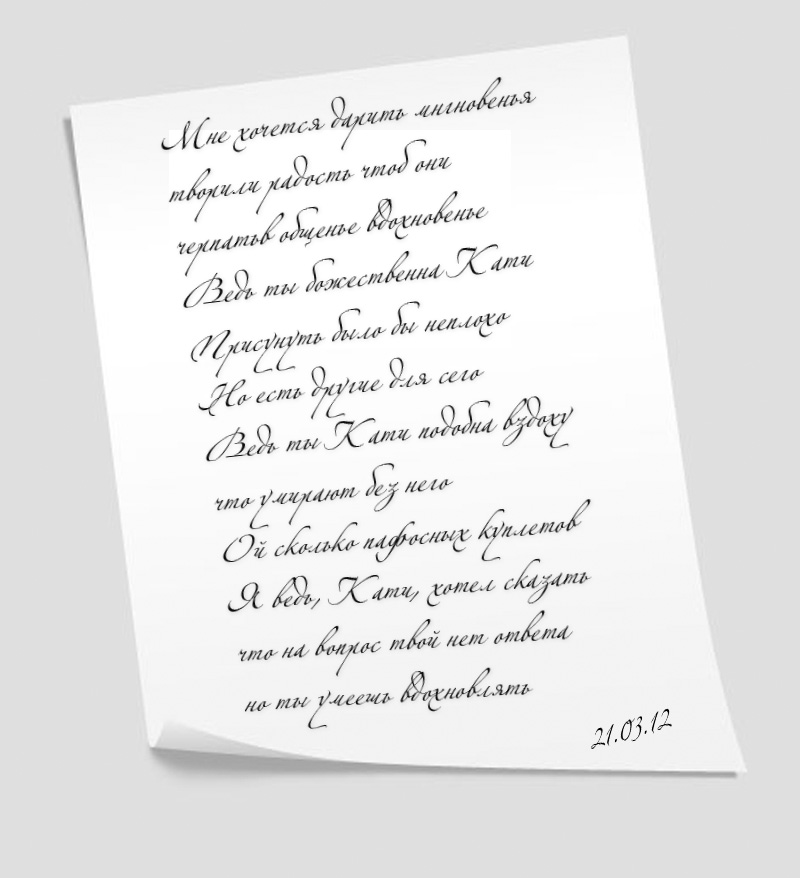 Мне хочется дарить мнгновенья
творили радость чтоб они
черпатьв общенье вдохновенье
Ведь ты божественна Кати
Присунуть было бы неплохо
Но есть другие для сего
Ведь ты Кати подобна вздоху
что умирают без него
Ой сколько пафосных куплетов
Я ведь, Кати, хотел сказать
что на вопрос твой нет ответа
но ты умеешь вдохновлять
21.03.12